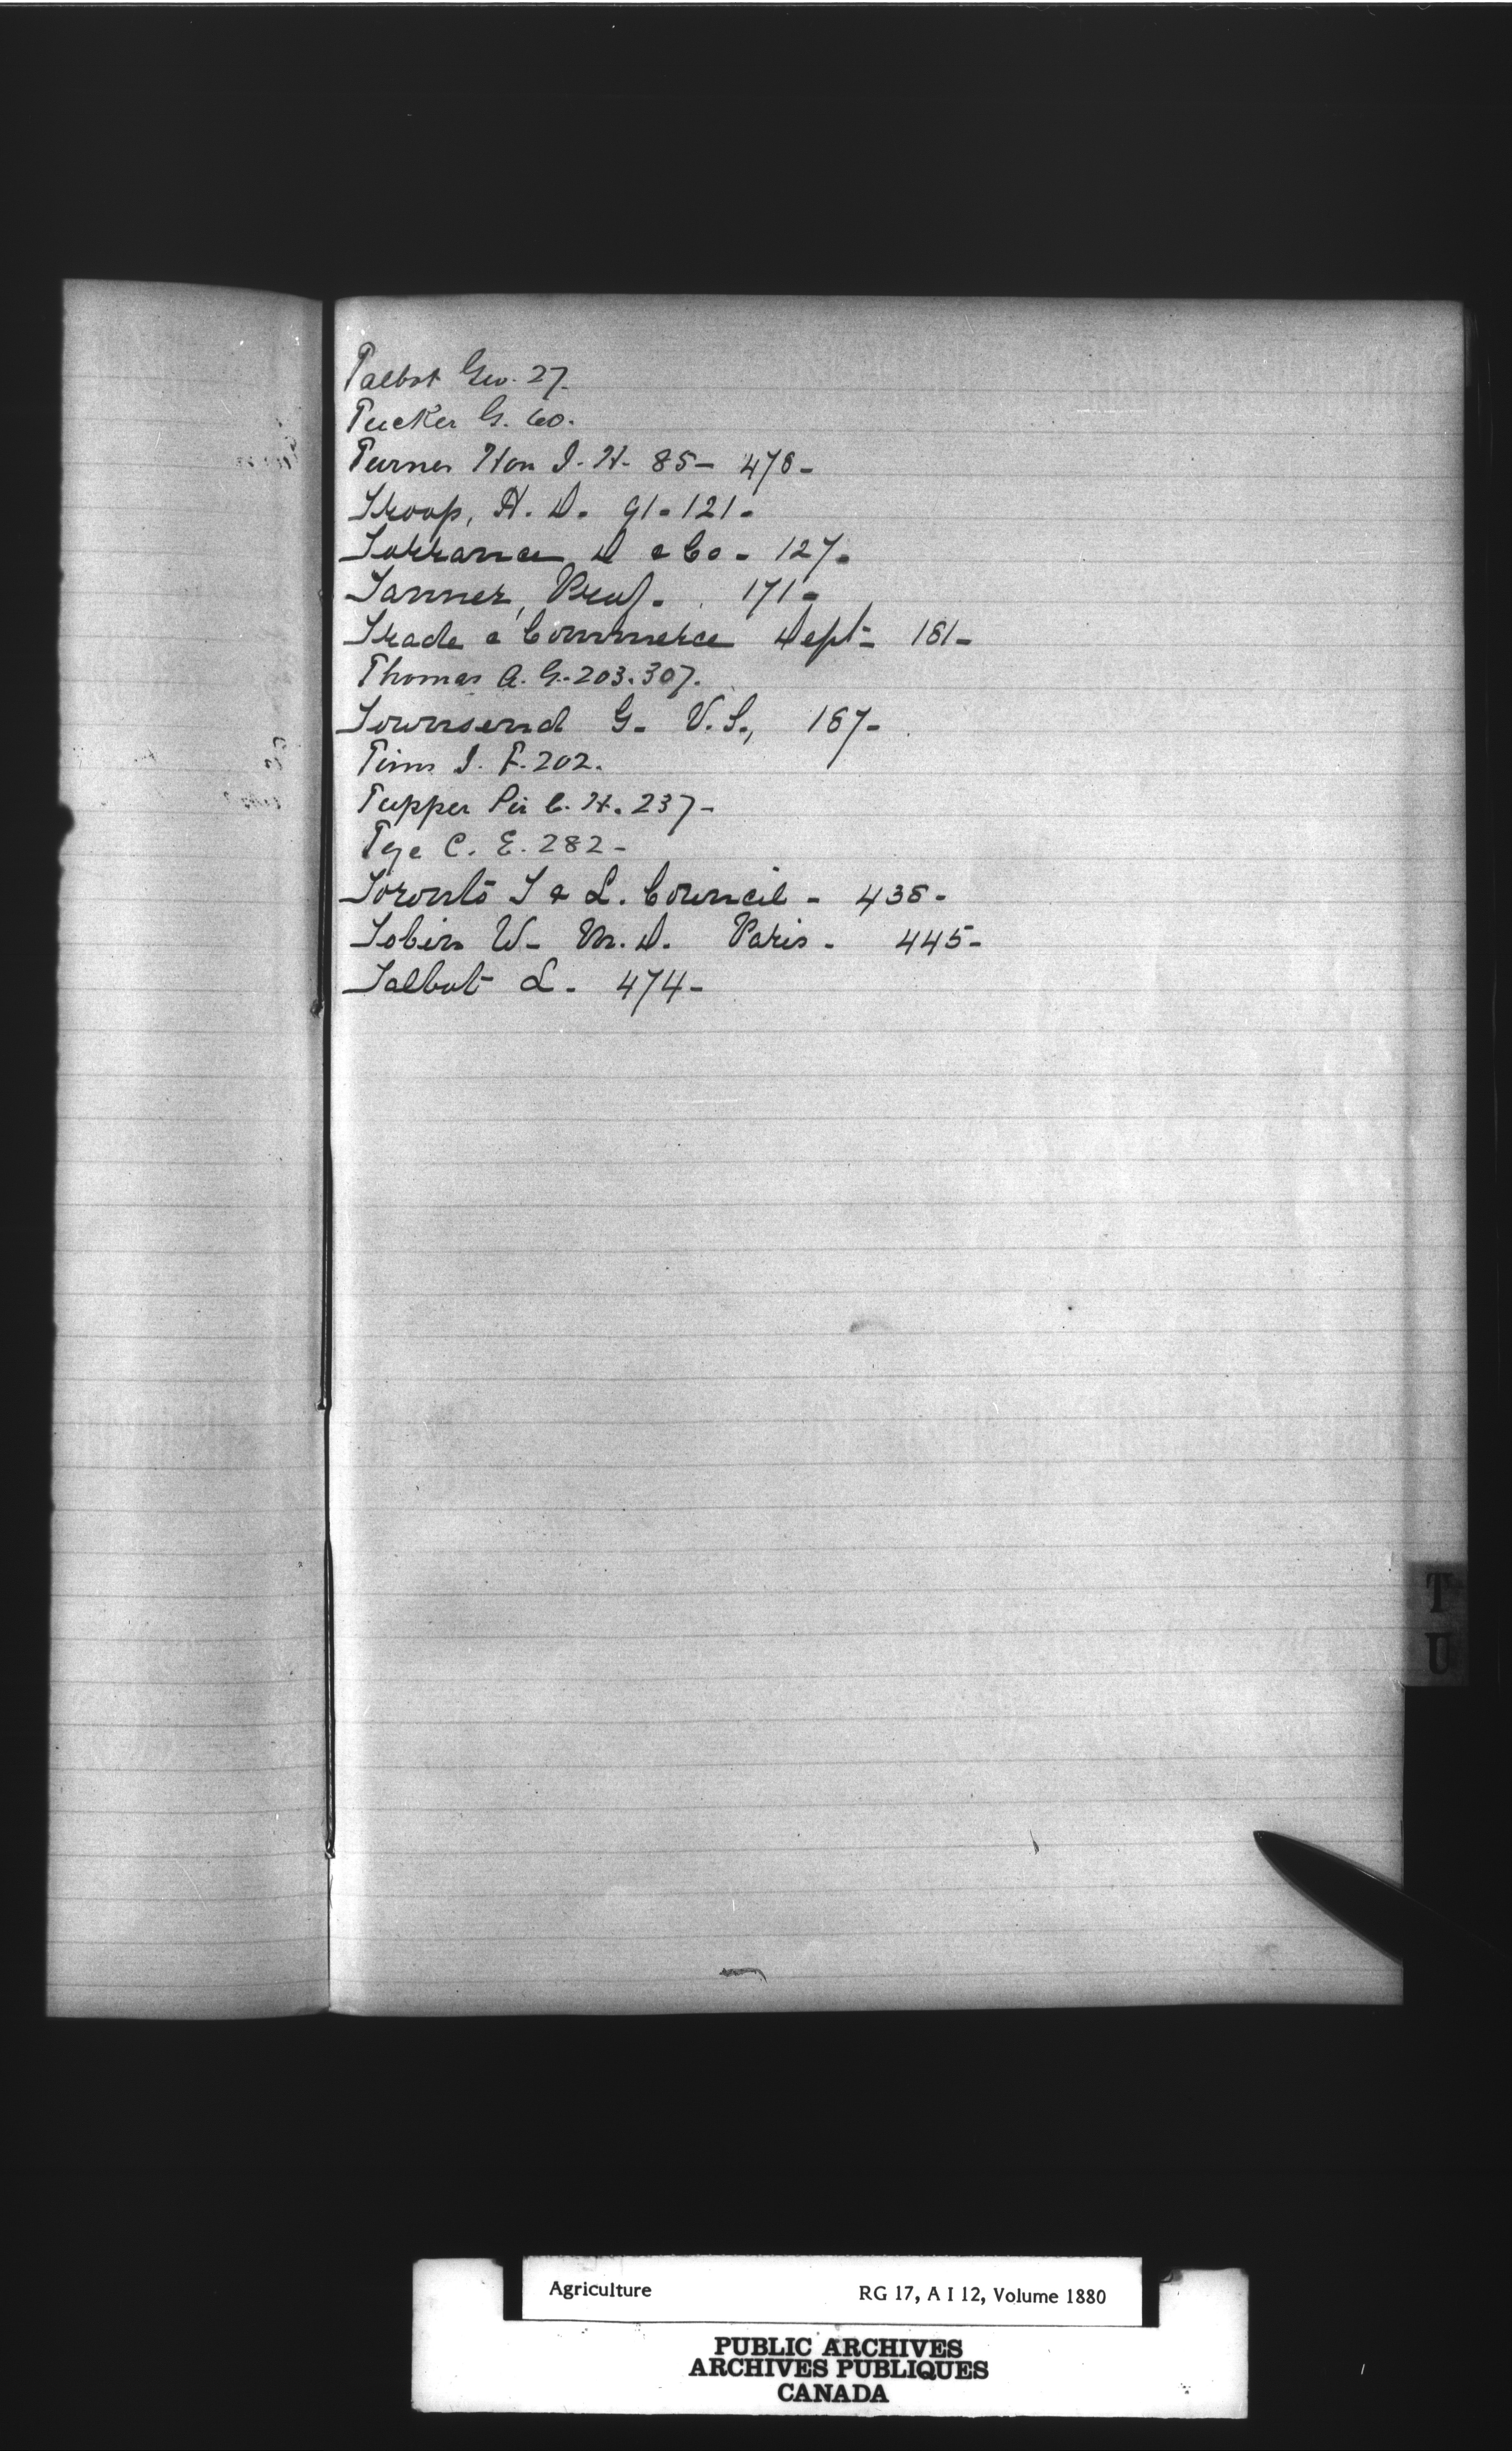 Talbot Geo. 27.
Tucker G. 60.
Turner Hon J. H. 85- 478-
Troop, H. D. 91-121-
Torrance D & Co - 127-
Tanner, Prof. 171-
Trade & Commerce Dept- 181-
Thomas A. G. 203. 307.
Townsend G. V.S., 187-
Tims J. F. 202.
Tupper Sir C. H. 237-
Tye C. E. 282-
Toronto T & L. Council - 438-
Tobin W- M.D. Paris - 445-
Talbot L. 474-
T
U
Agriculture RG 17, A I 12, Volume 1880
PUBLIC ARCHIVES
ARCHIVES PUBLIQUES
CANADA